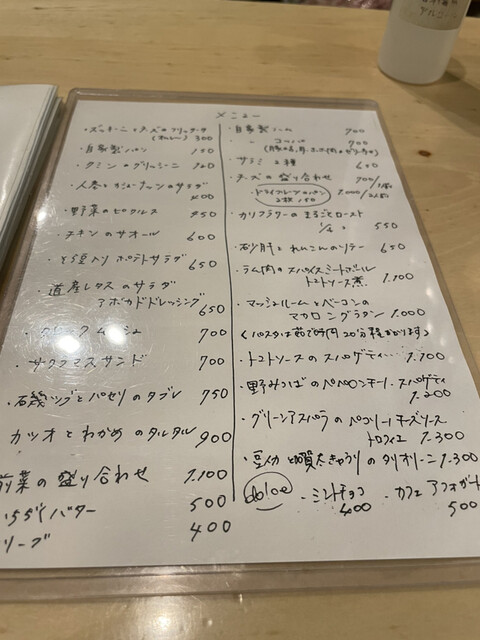 メニュー
・ズッキーニとチーズのフリッタータ
(ハーフ) 300
・自家製パン 150
・クミンのグリッシーニ 120
・人参とキューナッツのサラダ
400
・野菜のピクルス 450
・チキンのサオール 600
・とう豆入りポテトサラダ
650
・道産レタスのサラダ
アボカドドレッシング
650
700
・サクラマスサンド 700
・磯ツブとパセリのタブレ 750
カツオとわかめのタルタル 900
前菜の盛り合わせ 1.100
いちじくバター 500
リーブ 400
・自家製ハム 700
・〃 コッパ 900
・サラミ2種 650
・チーズの盛り合わせ
・ドライフルーツのパン
2枚 150
・カリフラワーのまるごとロースト
550
・砂肝とれんこんのソテー 650
・ラム肉のスパイスミートボール
トマトソース煮 1.100
・マッシュルームとベーコンの
マカロニグラタン 1.000
(パスタは茹で時間20分程かかります)
・トマトソースのスパゲティ 1.100
・野みつばのペペロンチーノ スパゲティ
1.200
・グリーンアスパラのペコリーノチーズソース
トロフィエ 1.300
のタリオリーニ 1.300
dolce
・ミントチョコ
400
・カフェアフォガート
500